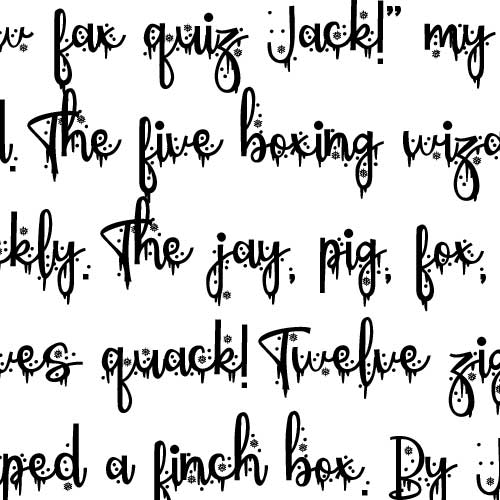 w fax quiz Jack!" my
d. The five boxing wiza
ckly. The jay, pig, fox,
ves quack! Twelve zig
ped a finch box. By J